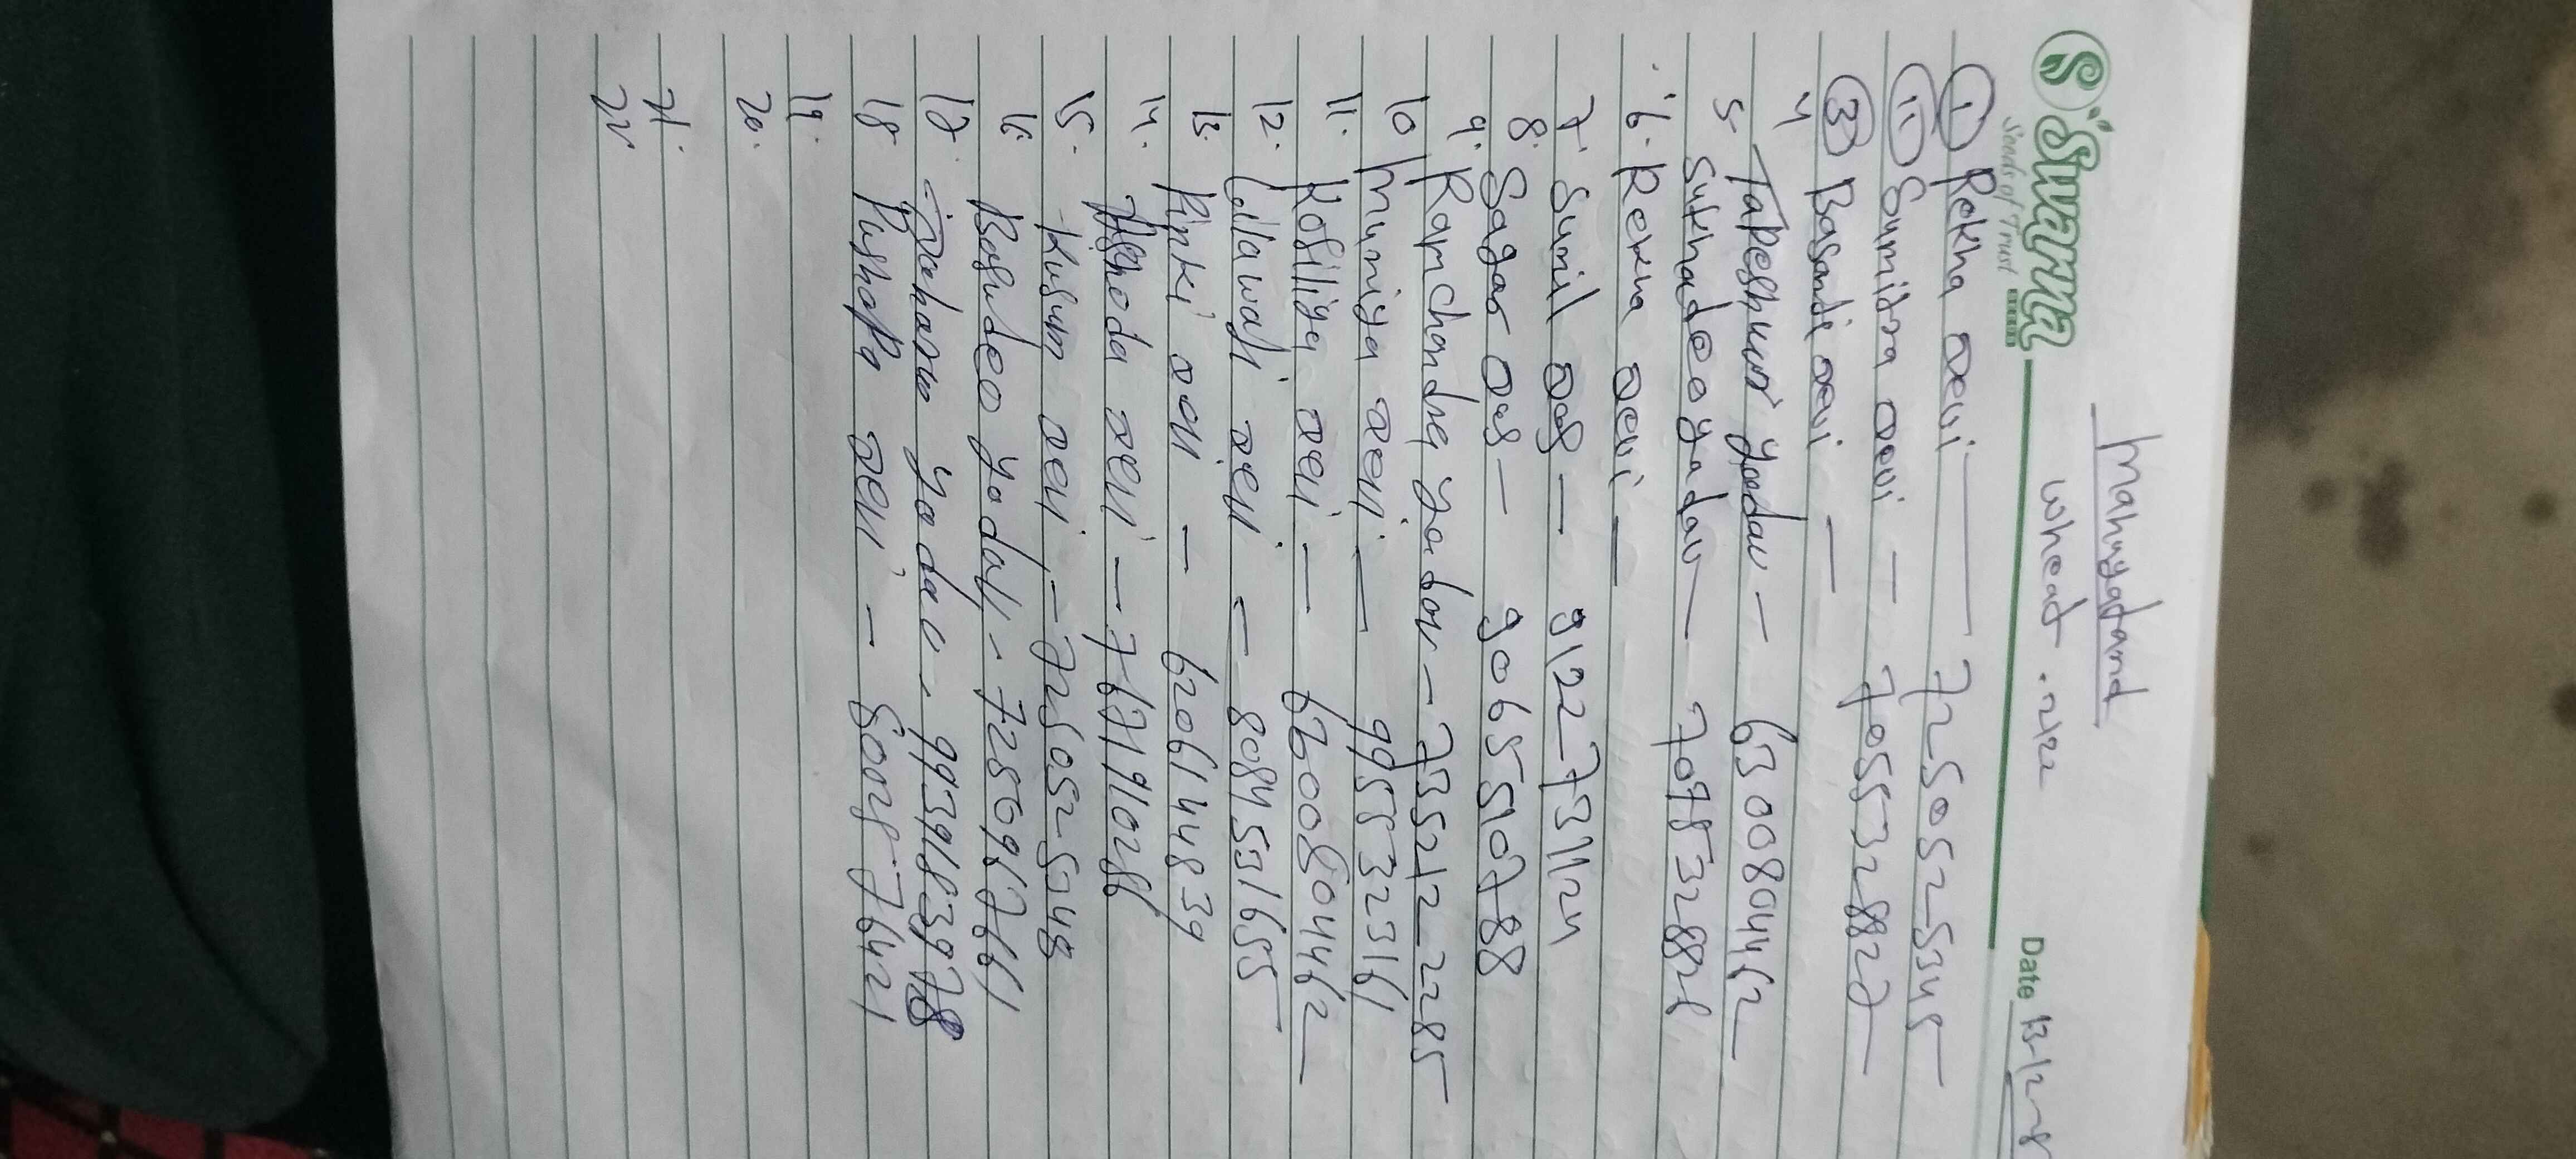 Mahuyatand
Swarna
Seeds of Trust
Wheat - 2122
Date 13/12/25
1 Rekha Devi — 7250525345
11 Sumitra Devi — 7055328827
3 Basanti Devi —
4 Tapeshwar Yadav — 6300804462
5- Sukhadeo yadav — 7098532828
6. Rekha Devi —
7. Sunil Das — 9122731124
8. Sagar Das — 9065510788
9. Ramchandra yadav — 7352122285
10 Muniya Devi — 9955323161
11. Kosiliya Devi — 6300804462
12. Lilawati Devi = 8084531655
13. Pinki Devi — 6206144839
14. Ashoda Devi —
15. Kusum Devi — 7250525348
16. Basudeo yadav - 7250967661
17. yadav -
18 Pushapa Devi —
19.
20.
21.
22